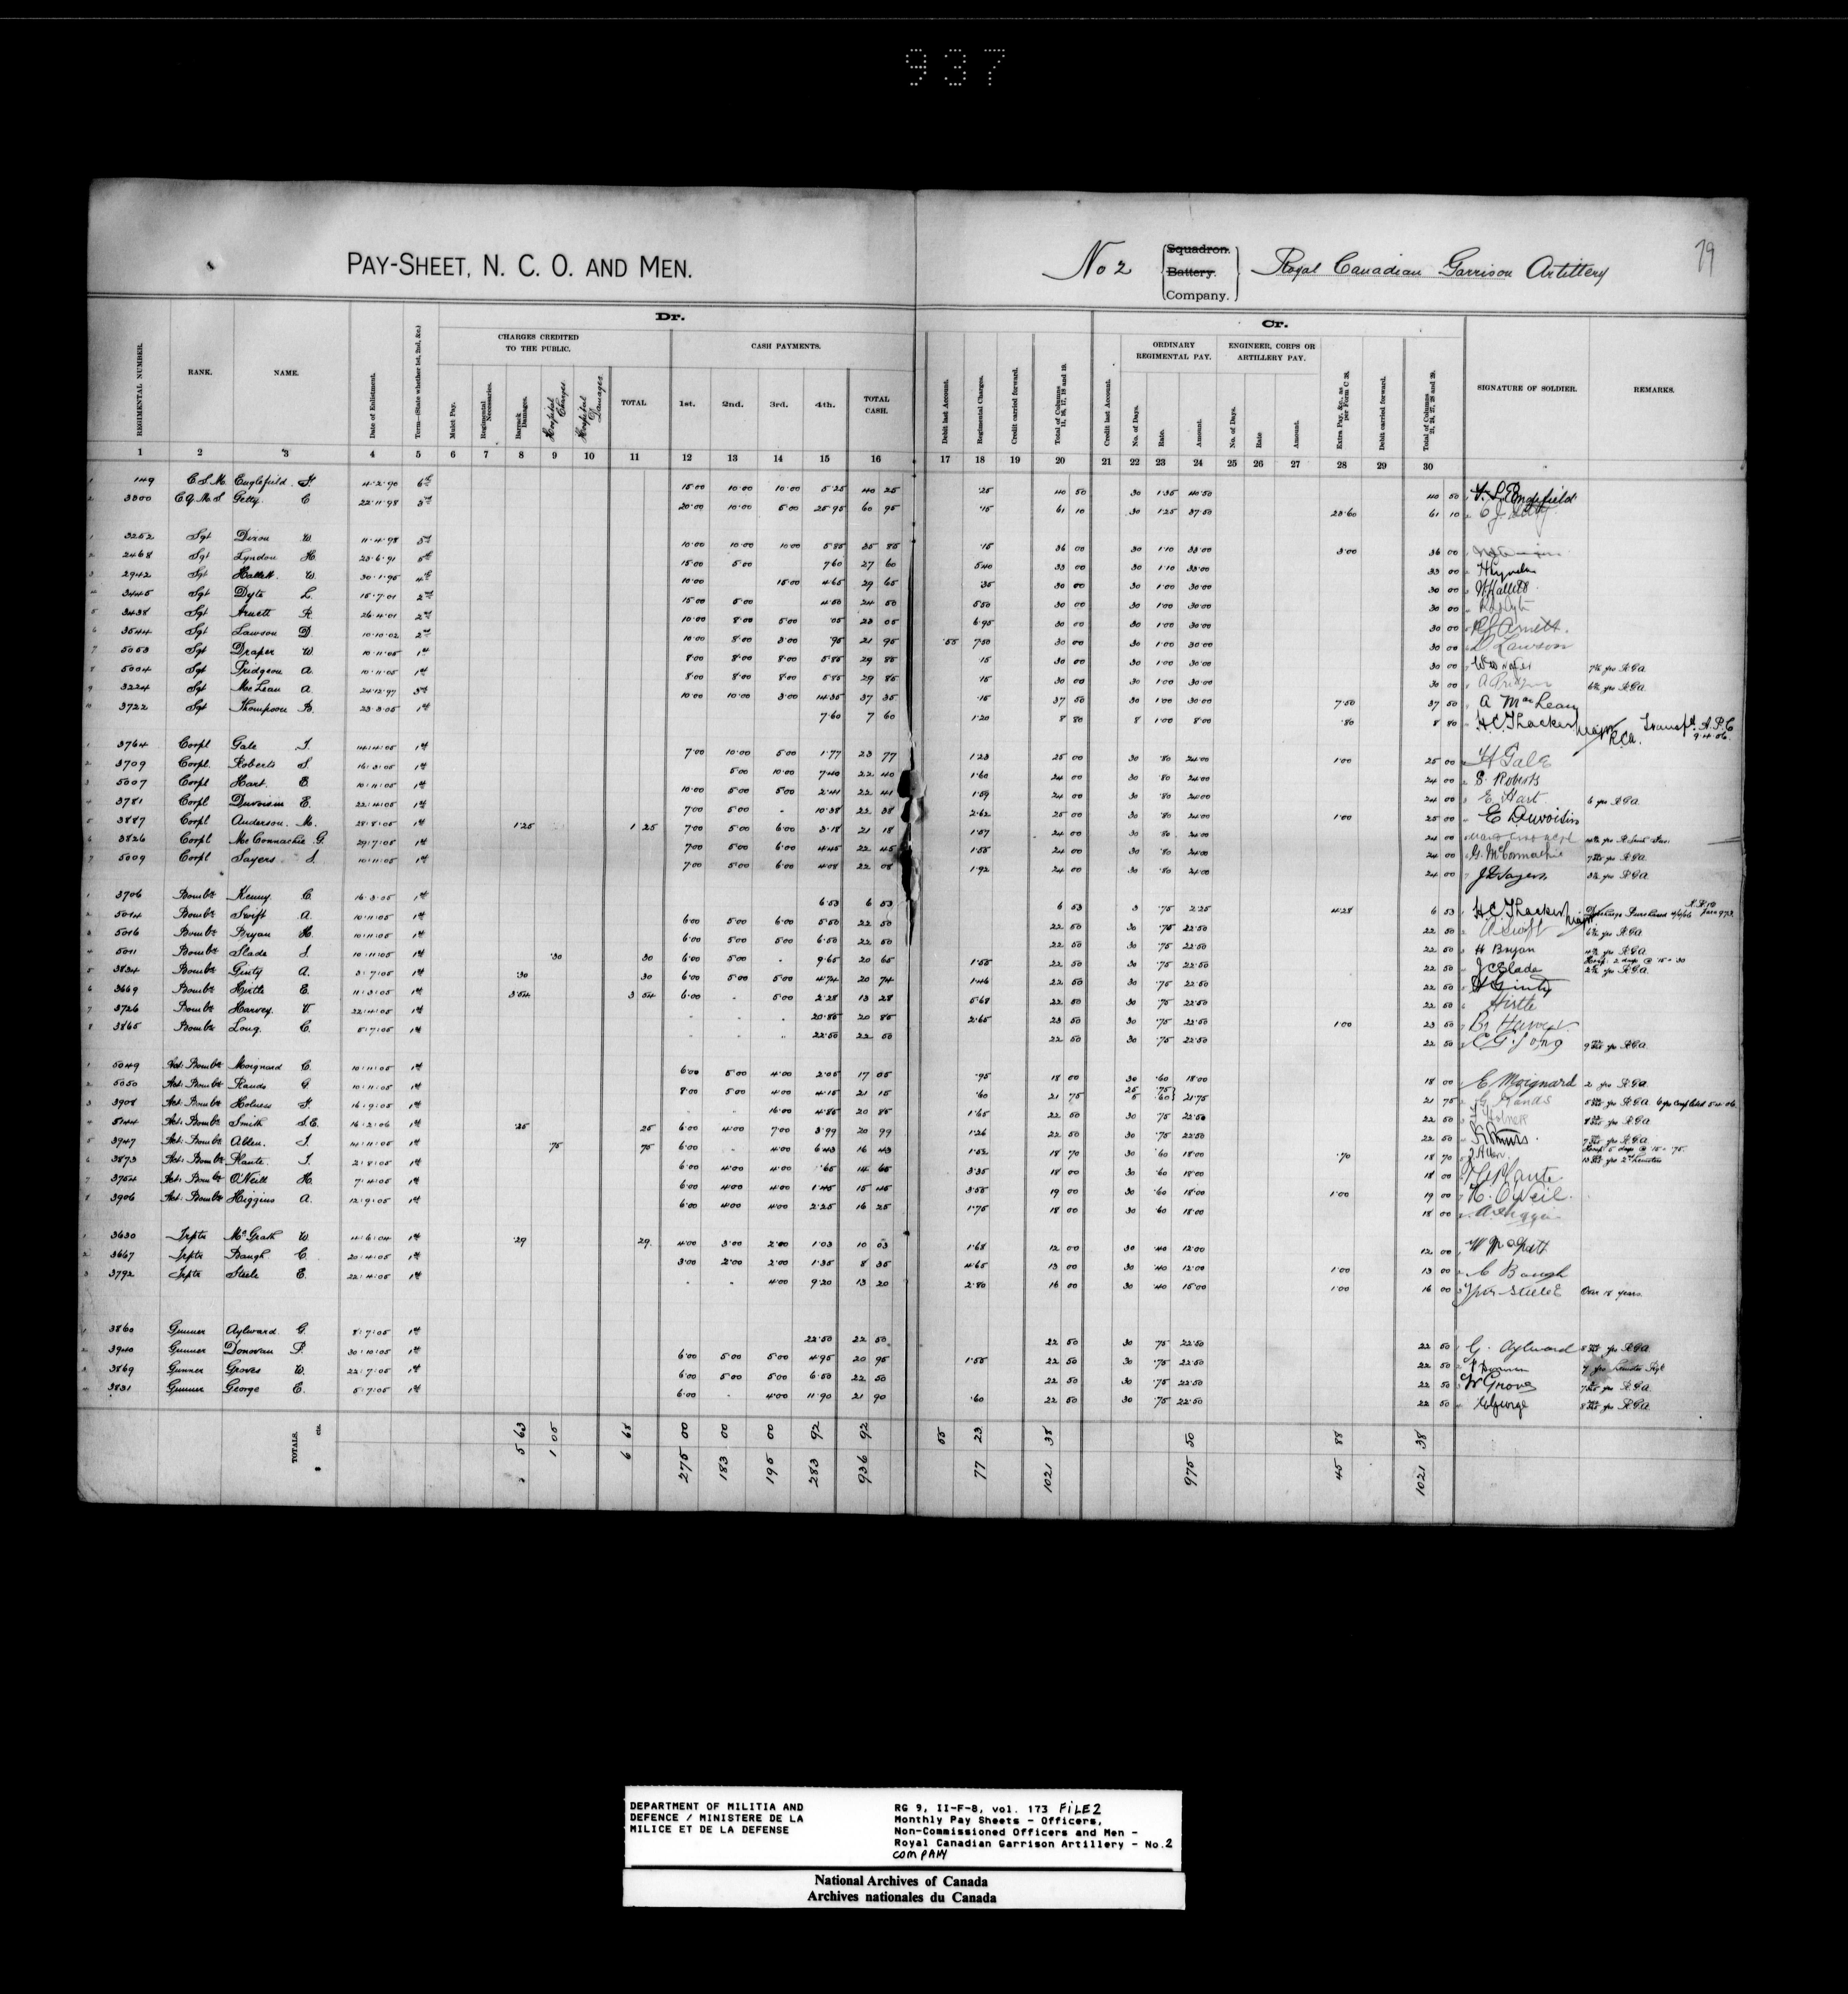 937
79
PAY-SHEET, N. C. O. AND MEN.
No 2 Squadron. Battery. Company. Royal Canadian Garrison Artillery
Dr. Cr.
CHARGES CREDITED TO THE PUBLIC. CASH PAYMENTS. ORDINARY REGIMENTAL PAY. ENGINEER, CORPS OR ARTILLERY PAY.
REGIMENTAL NUMBER. RANK. NAME. Date of Enlistment. Term—(State whether 1st, 2nd, &c.) Mulct Pay. Regimental Necessaries. Barrack Damages. Hospital Charges Hospital Damages TOTAL 1st. 2nd. 3rd. 4th. TOTAL CASH. Debit last Account. Regimental Charges. Credit carried forward. Total of Columns 11, 16, 17, 18 and 19. Credit last Account. No. of Days. Rate. Amount. No. of Days. Rate Amount. Extra Pay, &c., as per Form C 38. Debit carried forward. Total of Columns 21, 24, 27, 28 and 29. SIGNATURE OF SOLDIER. REMARKS.
1 2 3 4 5 6 7 8 9 10 11 12 13 14 15 16 17 18 19 20 21 22 23 24 25 26 27 28 29 30
1 149 C.S.M. Englefield. F. 4.2.90 6th 15.00 10.00 10.00 5.25 40 25 .25 40 50 30 1.35 40.50 40 50
2 3300 C.Q.M.S Getty. C 22.11.98 3rd 20.00 10.00 5.00 25.95 60 95 .15 61 10 30 1.25 37.50 23.60 61 10
1 3252 Sgt Dixon W 11.4.98 3rd 10.00 10.00 10.00 5.85 35 85 .15 36 00 30 1.10 33.00 3.00 36 00
2 2468 Sgt Lyndon H. 23.6.91 5th 15.00 5.00 7.60 27 60 5.40 33 00 30 1.10 33.00 33 00 H Lyndon
3 2942 Sgt Hallett. W. 30.1.95 4th 10.00 15.00 4.65 29 65 .35 30 00 30 1.00 30.00 30 00 W Hallett
4 3445 Sgt Dyte L. 15.7.01 2nd 15.00 5.00 4.50 24 50 5.50 30 00 30 1.00 30.00 30 00
5 3438 Sgt Arnett R. 26.4.01 2nd 10.00 8.00 5.00 .05 23 05 6.95 30 00 30 1.00 30.00 30 00 R J Arnett.
6 3544 Sgt Lawson D. 10.10.02 2nd 10.00 8.00 3.00 .95 21 95 .55 7.50 30 00 30 1.00 30.00 30 00 D Lawson
7 5053 Sgt Draper W 10.11.05 1st 8.00 8.00 8.00 5.85 29 85 .15 30 00 30 1.00 30.00 30 00
8 5004 Sgt Pridgeon A. 10.11.05 1st 8.00 8.00 8.00 5.85 29 85 .15 30 00 30 1.00 30.00 30 00
9 3224 Sgt MacLean A. 24.12.97 3rd 10.00 10.00 3.00 14.35 37 35 .15 37 50 30 1.00 30.00 7.50 37 50 A MacLean
10 3722 Sgt Thompson B. 23.3.05 1st 7.60 7 60 1.20 8 80 8 1.00 8.00 .80 8 80 H.C. Thacker Major RCA. Transfd A.P.C 9.4.06.
1 3764 Corpl Gale F. 14.4.05 1st 7.00 10.00 5.00 1.77 23 77 1.23 25 00 30 .80 24.00 1.00 25 00
2 3709 Corpl. Roberts S 16.3.05 1st 5.00 10.00 7.40 22 40 1.60 24 00 30 .80 24.00 24 00 S. Roberts
3 5007 Corpl Hart. E. 10.11.05 1st 10.00 5.00 5.00 2.41 22 41 1.59 24 00 30 .80 24.00 24 00 E. Hart 6 yrs R.G.A
4 3781 Corpl Duvoisin E. 22.4.05 1st 7.00 5.00 - 10.38 22 38 2.62 25 00 30 .80 24.00 1.00 25 00 E Duvoisin
5 3887 Corpl Anderson. M. 28.8.05 1st 1.25 1 25 7.00 5.00 6.00 3.18 21 18 1.57 24 00 30 .80 24.00 24 00
6 3826 Corpl MacConnachie G. 29.7.05 1st 7.00 5.00 6.00 4.45 22 45 1.55 24 00 30 .80 24.00 24 00
7 5009 Corpl Sayers J. 10.11.05 1st 7.00 5.00 6.00 4.08 22 08 1.92 24 00 30 .80 24.00 24 00 J Sayers
1 3706 Bombr Kenny. C. 16.3.05 1st 6.53 6 53 6 53 3 .75 2.25 4.28 6 53 H.C. Thacker Major
2 5014 Bombr Swift A. 10.11.05 1st 6.00 5.00 6.00 5.50 22 50 22 50 30 .75 22.50 22 50 A Swift
3 5016 Bombr Bryan H. 10.11.05 1st 6.00 5.00 5.00 6.50 22 50 22 50 30 .75 22.50 22 50 H Bryan
4 5011 Bombr Slade J 10.11.05 1st .30 30 6.00 5.00 - 9.65 20 65 1.55 22 50 30 .75 22.50 22 50 J C Slade Hosp. 2 days @ .15 = .30
5 3834 Bombr Ginty A. 3.7.05 1st .30 30 6.00 5.00 5.00 4.74 20 74 1.46 22 50 30 .75 22.50 22 50
6 3669 Bombr Hirtle E. 11.3.05 1st 3.54 3 54 6.00 - 5.00 2.28 13 28 5.68 22 50 30 .75 22.50 22 50 Hirtle
7 3726 Bombr Harvey. V. 22.4.05 1st - - - 20.85 20 85 2.65 23 50 30 .75 22.50 1.00 23 50
8 3865 Bombr Long. C. 5.7.05 1st - - - 22.50 22 50 22 50 30 .75 22.50 22 50 C G Long
1 5049 Act. Bombr Moignard C. 10.11.05 1st 6.00 5.00 4.00 2.05 17 05 .95 18 00 30 .60 18.00 18 00 C Moignard 2 yrs R.G.A
2 5050 Act. Bombr Rands G. 10.11.05 1st 8.00 5.00 4.00 4.15 21 15 .60 21 75 25 .75 5 .60 21.75 21 75 G Rands 6 yrs completed 5.4.06
3 3908 Act. Bombr Holness F. 16.9.05 1st - - 16.00 4.85 20 85 1.65 22 50 30 .75 22.50 22 50
4 5144 Act. Bombr Smith S.E. 16.2.06 1st .25 25 6.00 4.00 7.00 3.99 20 99 1.26 22 50 30 .75 22.50 22 50
5 3947 Act. Bombr Ablen. J. 14.11.05 1st .75 75 6.00 - 4.00 6.43 16 43 1.52 18 70 30 .60 18.00 .70 18 70 Hosp. 5 days @ .15 = .75
6 3873 Act. Bombr Plante. J. 2.8.05 1st 6.00 4.00 4.00 .65 14 65 3.35 18 00 30 .60 18.00 18 00
7 3754 Act. Bombr O'Neill H. 7.4.05 1st 6.00 4.00 4.00 1.45 15 45 3.55 19 00 30 .60 18.00 1.00 19 00 H. O'Neil
8 3906 Act. Bombr Higgins A. 12.9.05 1st 6.00 4.00 4.00 2.25 16 25 1.75 18 00 30 .60 18.00 18 00
1 3630 Trptr McGrath W. 4.6.04 1st .29 29 4.00 3.00 2.00 1.03 10 03 1.68 12 00 30 .40 12.00 12 00
2 3667 Trptr Baugh C. 20.4.05 1st 3.00 2.00 2.00 1.35 8 35 4.65 13 00 30 .40 12.00 1.00 13 00 C Baugh
3 3792 Trptr Steele E. 22.4.05 1st - - 4.00 9.20 13 20 2.80 16 00 30 .40 15.00 1.00 16 00 Over 18 years
1 3860 Gunner Aylward. G. 8.7.05 1st 22.50 22 50 22 50 30 .75 22.50 22 50 G. Aylward
2 3940 Gunner Donovan P. 30.10.05 1st 6.00 5.00 5.00 4.95 20 95 1.55 22 50 30 .75 22.50 22 50
3 3869 Gunner Groves W. 22.7.05 1st 6.00 5.00 5.00 6.50 22 50 22 50 30 .75 22.50 22 50 W Groves
4 3831 Gunner George C. 5.7.05 1st 6.00 - 4.00 11.90 21 90 .60 22 50 30 .75 22.50 22 50 C George
TOTALS. $ cts. 5 63 1 05 6 68 275 00 183 00 195 00 283 92 936 92 55 77 23 1021 38 975 50 45 88 1021 38
DEPARTMENT OF MILITIA AND
DEFENCE / MINISTERE DE LA
MILICE ET DE LA DEFENSE
RG 9, II-F-8, vol. 173 FILE 2
Monthly Pay Sheets - Officers,
Non-Commissioned Officers and Men -
Royal Canadian Garrison Artillery - No. 2
COMPANY
National Archives of Canada
Archives nationales du Canada